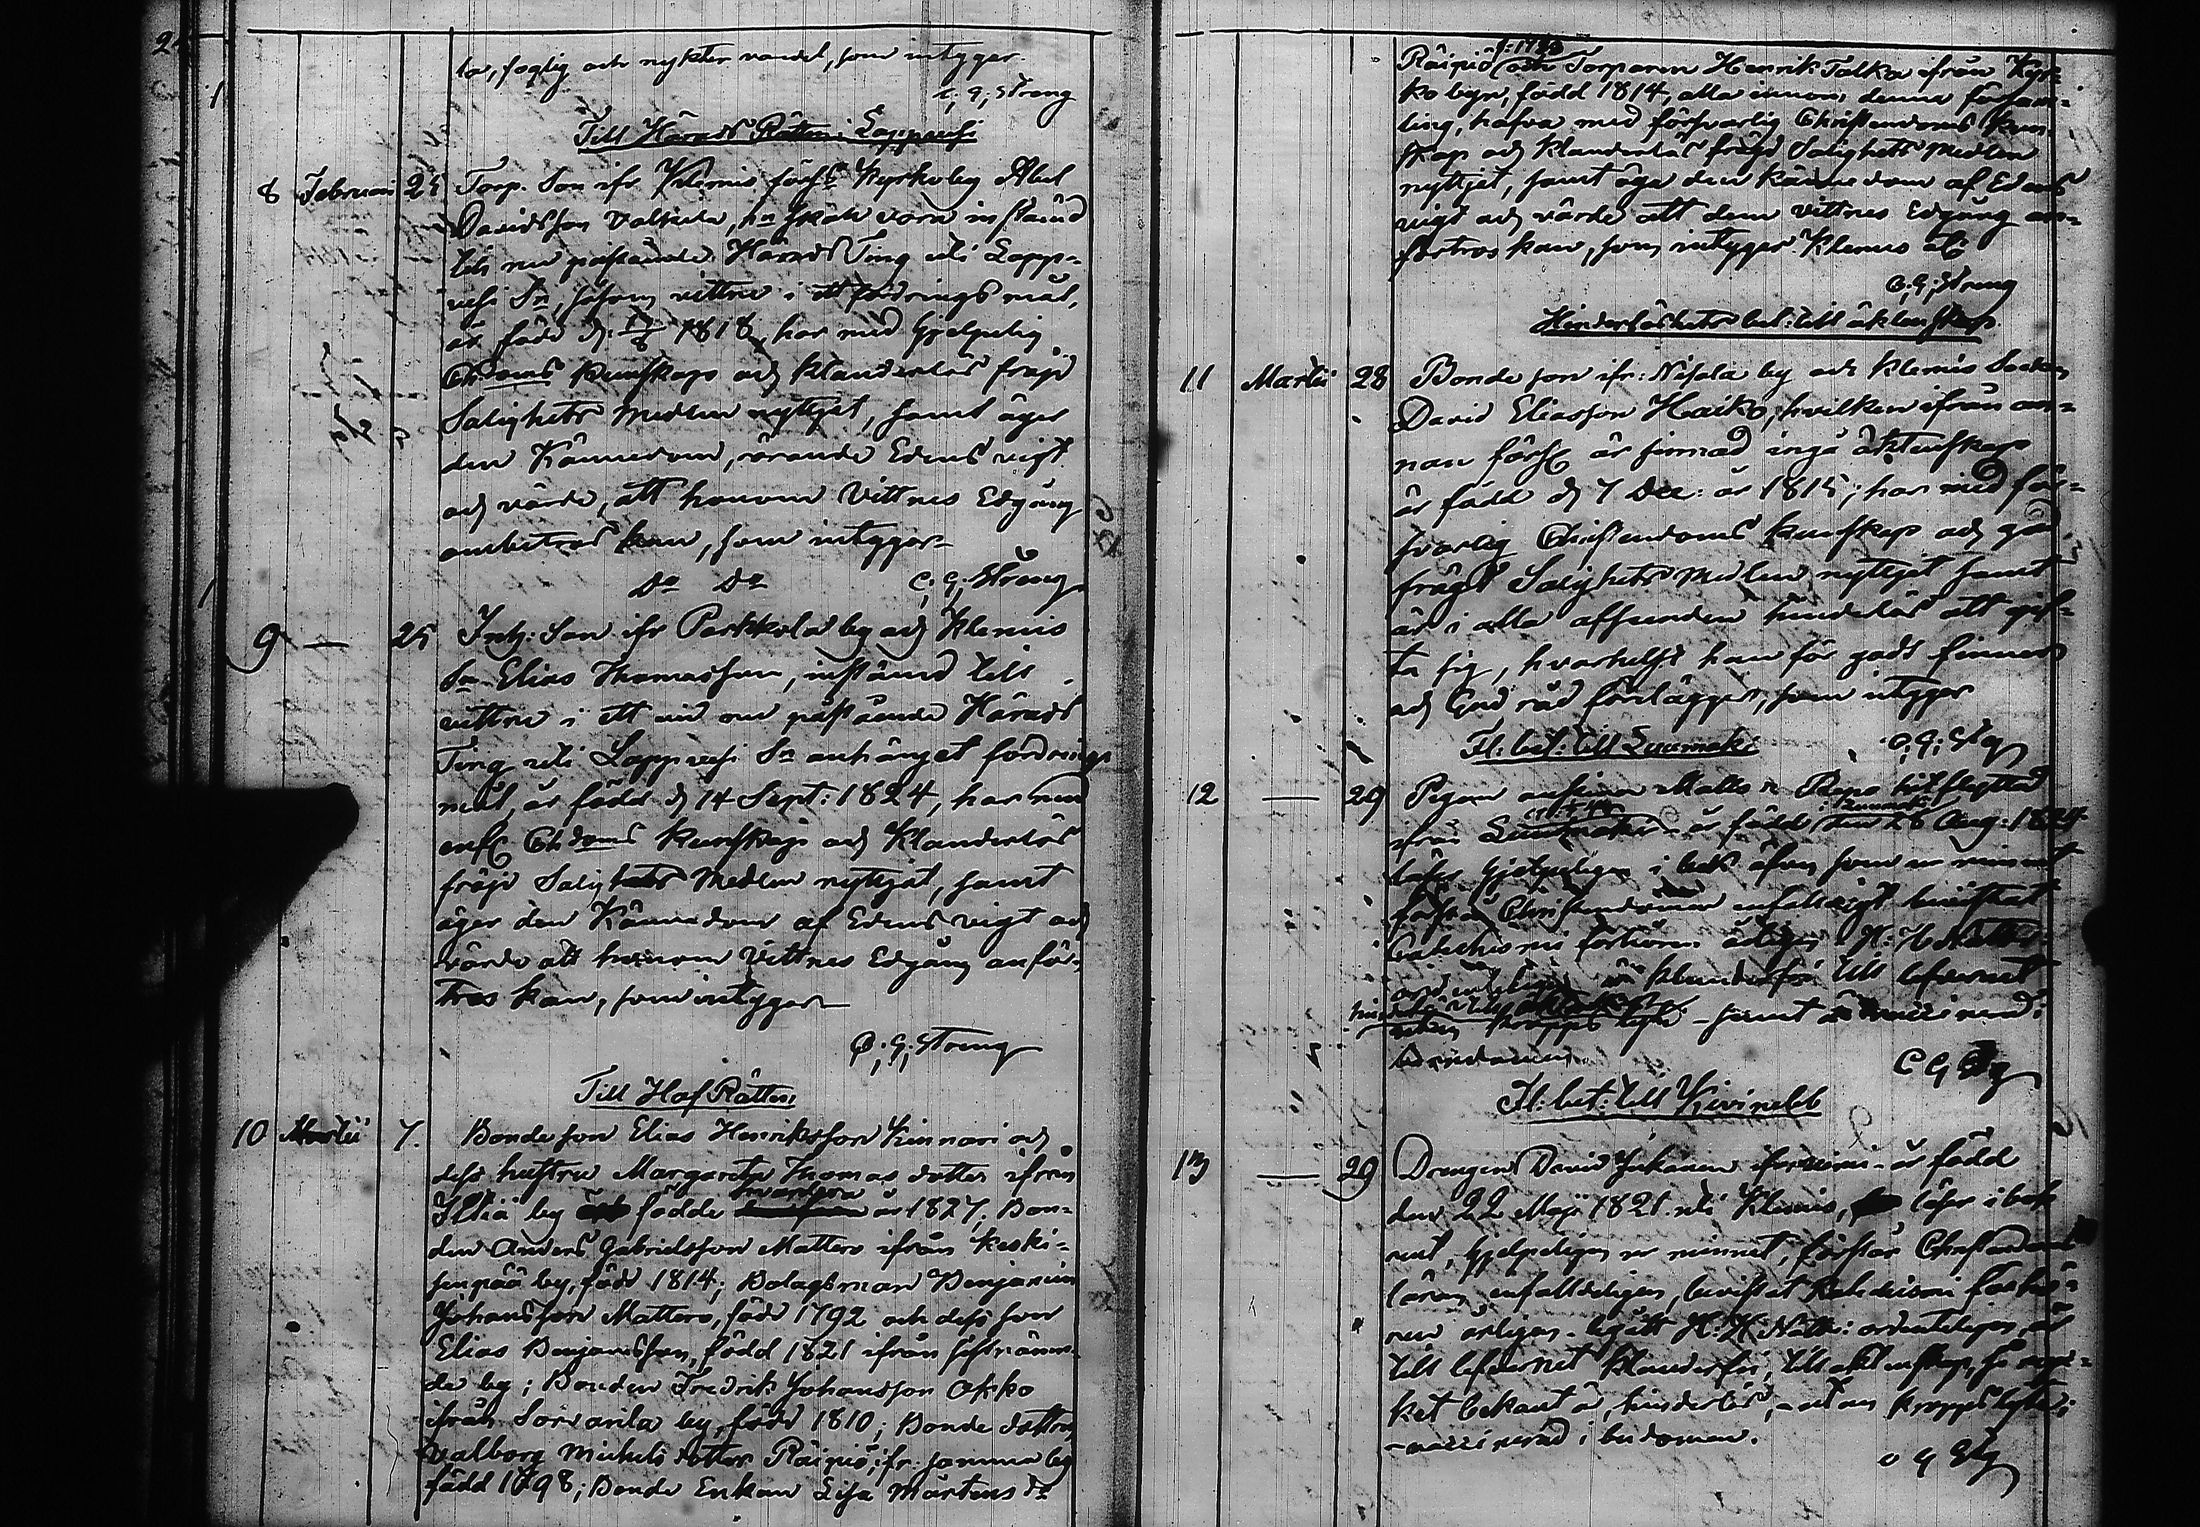 la, foglig och nykter vandel, som intygar.
C: G: Streng
Till Härads Rätten i Lappvesi
8 Februari 25 Torp. Son ifr Klemis förs: Kyrkoby Abel
Davidsson Valkila, hn skäll varn instämd
till nu påstående Härads Ting uti Lapp-
vesi Sn, såsom vittne i ett fordrings mål,
är född d. 1818, har med hjelpelig
Chrdoms kunskap och klanderlös frejd
Salighets medlen nyttjat, samt äger
den Kännedom, rörande Edens vigt
och värde, att honom Vittnes Edgång
anbetros kan, som intygar
Do Do C: G: Streng
9 — 25 Inh: Son ifr Parkkola by och Klemis
Sn Elias Thomasson, instämd till
vittne i ett vid nu påstående Härads
Ting uti Lappvesi Sn anhängt fordrings
mål, är född d 14 Sept: 1824, har med
Chrdoms kunskap och Klanderlös
frejd Salighets Medlen nyttjat, samt
äger den Kännedom af Edens vigt och
värde att honom Vittnes Edgång anför-
tros kan, som intygar
C: G: Streng
Till Hof Rätten
10 Martii 7. Bondeson Elias Henriksson Kinnari och
dess hustru Margareta Thomas dotter ifrån
Ilkiä by födde hvardera år 1827; Bon-
den Anders Gabrielsson Mattero ifrån Keski-
senpää by, född 1814; Bolagsman Benjamin
Johansson Mattero, född 1792 och dess son
Elias Benjamsson, född 1821 ifrån sistnämn-
de by; Bonden Fredrik Johansson Okko
ifrån Sorvarila by, född 1810; Bonde dottren
Valborg Michels dotter Räipiö, ifr: samma by
född 1798; Bonde Enkan Lisa Mårtens dr
Räipiö och Torparen Henrik Talka ifrån Kyr-
ko byn, född 1814, alla innom denna försam-
ling, hafva med försvarlig Christendoms kun-
skap och klanderlös frejd Salighets medlen
nyttjat, samt äga den kännedom af Edens
vigt och värde att dem vittnes Edgång an-
förtros kan, som intygar Klemis
C: G: Streng
Hinderlöshets bet: till äktenskap
11 Martii 28 Bonde son ifr: Nisala by och Klemis Socken
David Eliasson Haiko, hvilken ifrån an-
nan förs: är sinnad ingå äktenskap
är född d 7 Dec: år 1815; har med för-
svarlig Christendoms kunskap och god
frägd Salighets medlen nyttjat samt
är i alla afseenden hinderlös att gif-
ta sig, hvarhelst han för godt finner
och Gud råd förelägger, som intygar
Fl: bet: till Luumäki C: G: Stg
12 — 29 Pigan Matts dr Repo hit flyttad
ifrån Luumäki är född den 28 Aug: 1824
läser hjelpeligen i bok äfven som ur minnet
förstår Christendomen enfaldigt bevistat
Catechismi förhören årligen H: H: Nattv:
ordentligen är klanderfri till lefvernet
hinderlös till äktenskap
utan kropps lyte - samt är vaccinerad i
barndomen.
C G Stg
Fl: bet: till Kivinebb
13 — 29 Drengen David Juhanen ifr är född
den 22 Maji 1821 uti Klemis, läser i bok
rent, hjelpeligen ur minnet, förstår Christendoms
läran enfalldeligen, bevistat Katechismi förhö-
ren årligen, begått H: H: Nattv: ordentligen, är
till lefvernet klanderfri, till äktenskap, så myc-
ket bekant är, hinderlös, - utan kroppslyte;
- vaccinerad i barndomen.
C G Stg